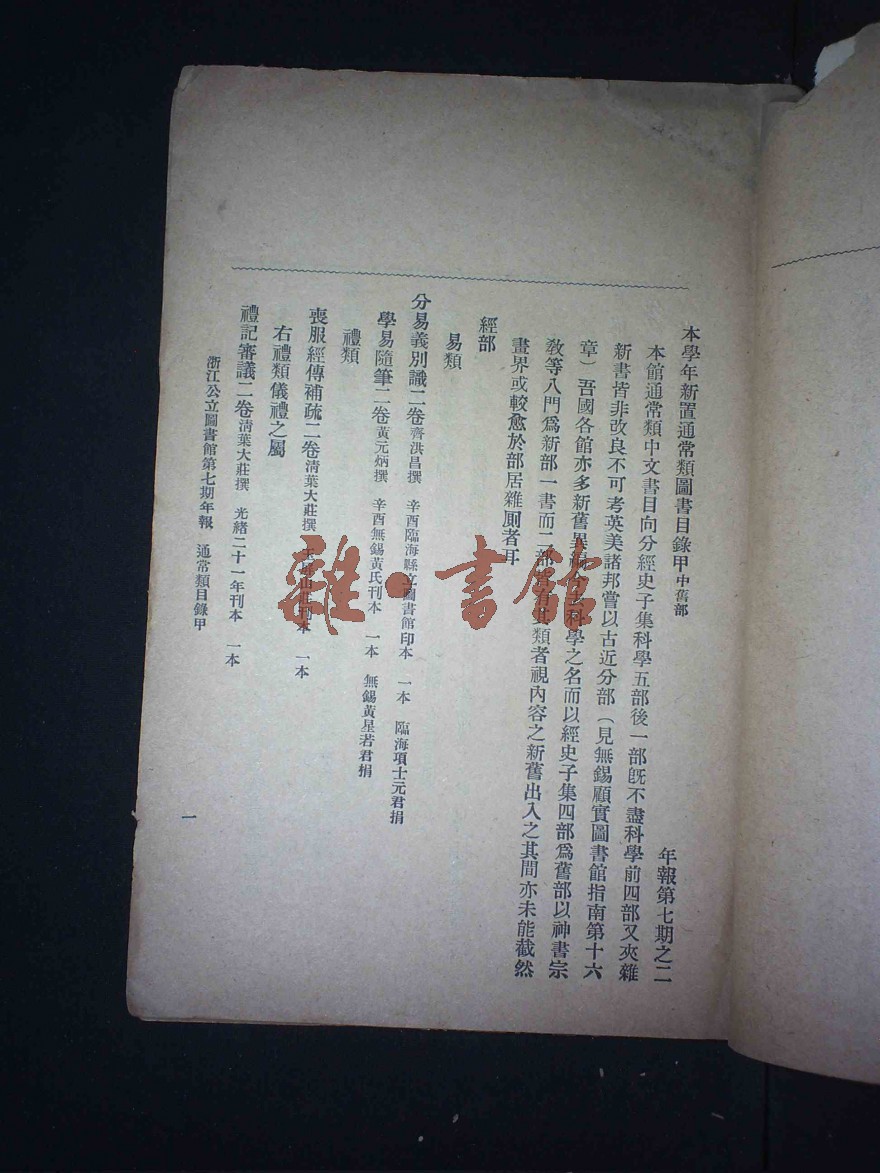 本學年新置通常類圖書目錄甲中舊部
年報第七期之二
本館通常類中文書目向分經史子集科學五部後一部旣不盡科學前四部又夾雜
新書皆非改良不可考英美諸邦嘗以古近分部（見無錫顧實圖書館指南第十六
章）吾國各館亦多新舊異 科學之名而以經史子集四部爲舊部以神書宗
敎等八門爲新部一書而二部 類者視內容之新舊出入之其間亦未能截然
畫界或較愈於部居雜厠者耳
經部
易類
分易義別識二卷齊洪昌撰 辛酉臨海縣立圖書館印本 一本 臨海項士元君捐
學易隨筆二卷黃元炳撰 辛酉無錫黃氏刊本 一本 無錫黃星若君捐
禮類
喪服經傳補疏二卷淸葉大莊撰 山莊刊本 一本
右禮類儀禮之屬
禮記審議二卷淸葉大莊撰 光緒二十一年刊本 一本
浙江公立圖書館第七期年報 通常類目錄甲
一
雜·書館